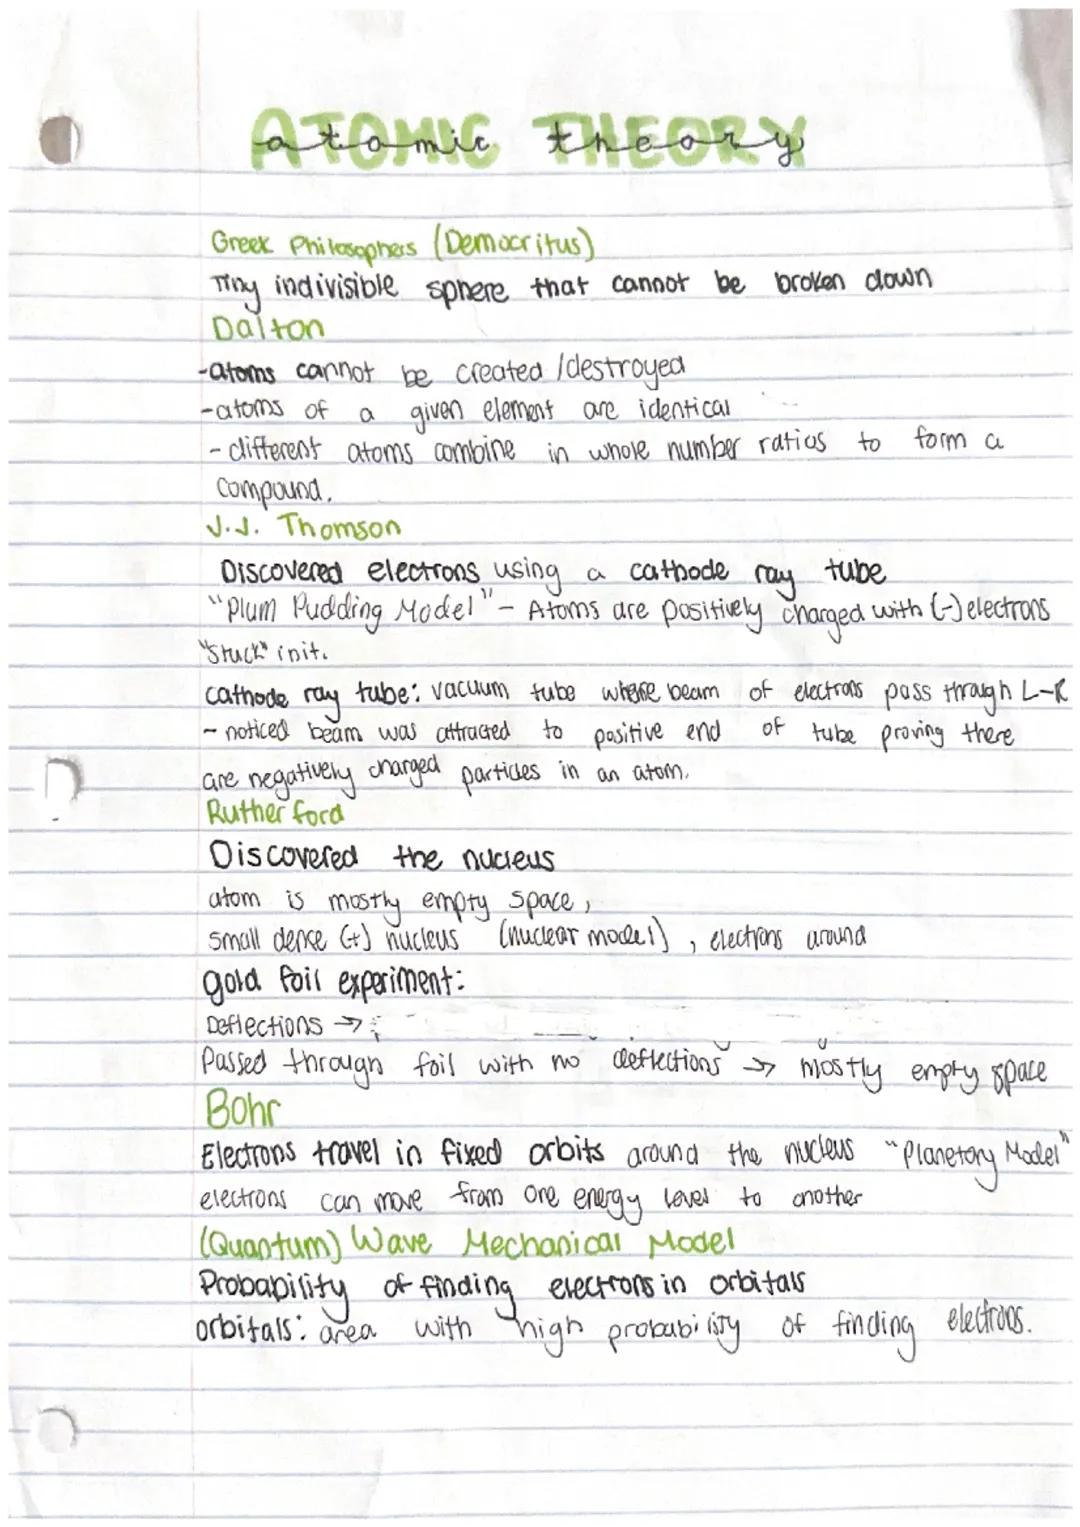 ATOMIC THEORY
atomic theory
Greek Philosophers (Democritus)
Tiny indivisible sphere that cannot be broken down
Dalton
-atoms cannot be created /destroyed
-atoms of a given element are identical
- different atoms combine in whole number ratios to form a
compound.
J.J. Thomson
Discovered electrons using a cathode ray tube
"Plum Pudding Model" - Atoms are positively charged with (-) electrons
"Stuck" in it.
cathode ray tube: vacuum tube where beam of electrons pass through L-R
- noticed beam was attracted to positive end of tube proving there
are negatively charged particles in an atom.
Rutherford
Discovered the nucleus
atom is mostly empty space,
small dense (+) nucleus (nuclear model), electrons around
gold foil experiment:
Deflections →:
Passed through foil with no deflections → mostly empty space
Bohr
Electrons travel in fixed orbits around the nucleus "Planetory Model"
electrons can move from one energy level to another
(Quantum) Wave Mechanical Model
Probability of finding electrons in orbitals
orbitals: area with high probability of finding electrons.